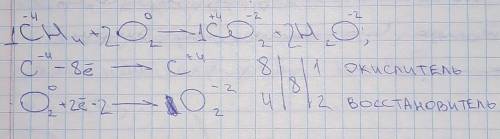 1C⁻⁴H₄ + 2O₂⁰ → 1C⁺⁴O₂⁻² + 2H₂O⁻²;
C⁻⁴ - 8ē → C⁺⁴ 8 | 8 | 1 окислитель
O₂⁰ + 2ē·2 → O₂⁻² 4 | 2 восстановитель